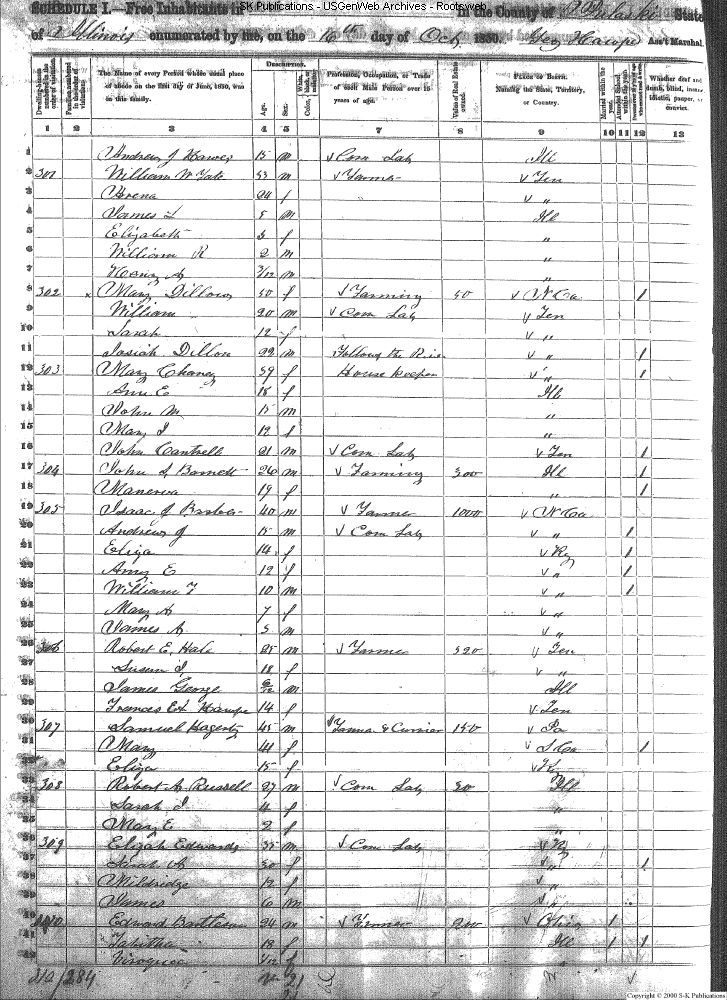 SK Publications - USGenWeb Archives - Rootsweb
SCHEDULE I.—Free Inhabitants in in the County of Pulaski State
of Illinois enumerated by me, on the 16th day of Oct. 1850. Ass't Marshal.
Dwelling-houses numbered in the order of visitation. Families numbered in the order of visitation. The Name of every Person whose usual place of abode on the first day of June, 1850, was in this family. Description. Age. Sex. Color, Profession, Occupation, or Trade of each Male Person over 15 years of age. Value of Real Estate owned. Place of Birth. Naming the State, Territory, or Country. Married within the year. Attended School within the year. Whether deaf and dumb, blind, insane, idiotic, pauper, or convict.
1 2 3 4 5 6 7 8 9 10 11 12 13
1 Andrew J 15 m Com Lab Ill
2 301 William W Tate 53 m Farmer Ten
3 24 f "
4 James L 5 m Ill
5 Elizabeth f "
6 William R 2 m "
7 Henry A /12 m "
8 302 x Mary Dillow 50 f Farming 50 N Ca /
9 William 20 m Com Lab Ten
10 Sarah 12 f "
11 Josiah Dillon 22 m Follows the River " /
12 303 Mary Chaney 39 f House keeper " /
13 Ann E 18 f Ill
14 John M 15 m "
15 Mary J 12 f "
16 John Cantrell 21 m Com Lab Ten /
17 304 John S Barnett 26 m Farming 300 Ill /
18 Manerva 19 f " /
19 305 Isaac J 40 m Farmer 1000 N Ca
20 Andrew J 15 m Com Lab " /
21 Eliza 14 f Ky /
22 Amy E 12 f " /
23 William F 10 m " /
24 Mary A 7 f "
25 James A 5 m "
26 306 Robert E. Hale 25 m Farmer 320 Ten
27 Susan J 18 f "
28 James George /12 m Ill
29 14 f Ten
30 307 Samuel Hagerty 45 m Tanner & Currier 150 Pa
31 Mary 41 f S Ca /
32 Eliza 15 f Ky
33 308 Robert A Russell 27 m Com Lab 50 Ill
34 Sarah J f "
35 Mary E 2 f "
36 309 Elijah Edwards 35 m Com Lab Ky
37 Sarah A 30 f " /
38 Mildridge 12 f "
39 James 6 m "
40 310 Edward Bartleson 24 m Farmer 200 Ohio /
41 Tabitha 19 f Ill / /
42 /12 f "
310/284
Copyright © 2000 S-K Publications